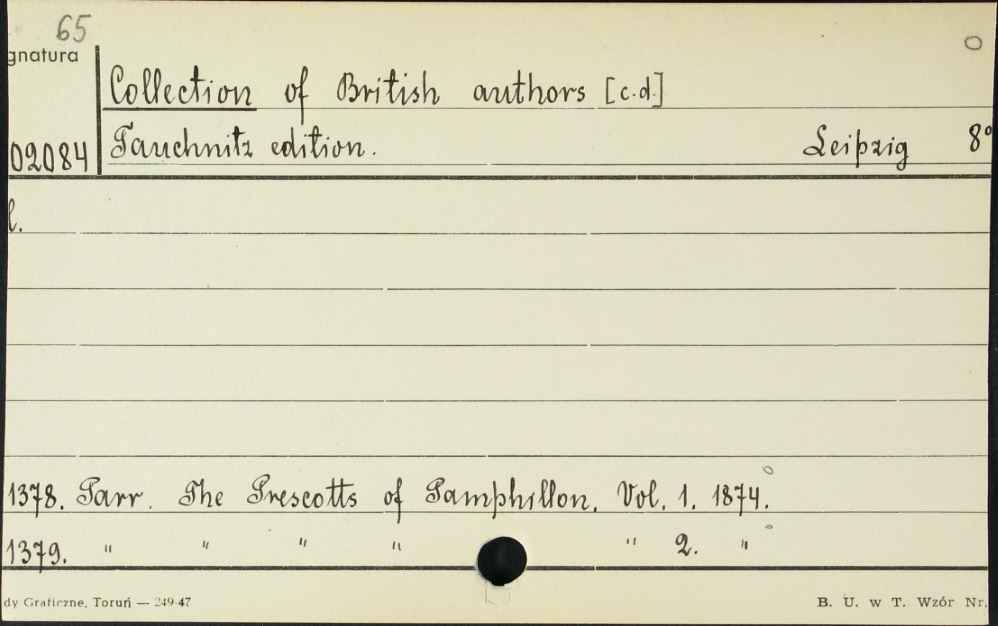 65
gnatura
Collection of British authors [c.d.]
02084 Tauchnitz edition. Leipzig 8°
l.
1378. Parr. The Prescotts of Pamphillon. Vol. 1. 1874.
1379. " " " " " 2. "
dy Graficzne, Toruń — 249-47 B. U. w T. Wzór Nr.